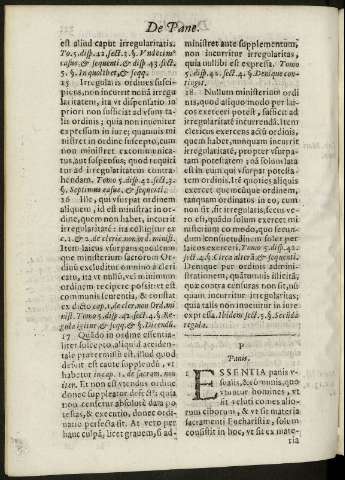 De Pane.
est aliud caput irregularitatis.
To. 5. disp. 42. sect. 3. §. Vndecimus
casus, & sequenti. & disp. 43. sect.
5. §. In quolibet, & seqq.
25 Irregularis ordines suscipiens,
non incurrit nouã irregu
laritatem, ita vt dispensatio in
priori non sufficiat ad vsum talis
ordinis; quia non inuenitur
expressum in iure; quamuis ministret
in ordine suscepto, cum
non ministret excommunicatus,
aut suspensus; quod requiritur
ad irregularitatem contrahendam.
Tomo 5. disp. 42. sect. 3.
§. Septimus casus, & sequenti.
26 Ille, qui vsurpat ordinem
alienum, id est ministrat in ordine,
quem non habet, incurrit
irregularitatem: ita colligitur ex
c. 1. & 2. de cleric. non ord. minist.
Item laicus vsurpans quodcumque
ministerium sacrorum Ordinũ
excluditur omnino à clericatu,
ita vt nullũ, vel minimum
ordinem recipere possit: vt est
communis sententia, & constat
ex dicto cap. 1. de cler. non Ord. minist.
Tomo 5. disp. 42. sect. 4. §. Regula
igitur & seqq. & §. Dicendũ.
17 Quãdo in ordine essentialiter
suscepto, aliquid accidentale
prætermissũ est, illud quod
defuit est caute supplendũ, vt
habetur in cap. 1. de sacram. non
iter. Et non est vtendus ordine
donec suppleatur defectꝰ: quia
non censetur absolutè data potestas,
& executio, donec ordinatio
perfecta sit. At verò per
hanc culpã, licet grauem, si administret
ante supplementum,
non incurritur irregularitas,
quia nullibi est expressa. Tomo
5. disp. 42. sect. 4. §. Denique contingit.
28 Nullum ministerium ordinis,
quod aliquo modo per laicos
exerceri potest, sufficit ad
irregularitatẽ incurrendã. Item
clericus exercens actũ ordinis,
quem habet, numquam incurrit
irregularitatẽ, propter vsurpatam
potestatem; id solum lata
est in eum qui vsurpat potestatem
ordinis. Itẽ quoties aliquis
exercet quemcumque ordinem,
tanquam ordinatus in eo, cum
non sit, fit irregularis, secus vero
est, quãdo solum exercet ministerium
eo modo, quo secundum
consuetudinem solet per
laicos exerceri. Tomo 5. disp. 42.
sect. 4. §. Circa alterã, & sequenti.
Denique per ordinis administrationem,
quãtumuis illicitã,
quæ contra censuras non sit, nũ
quam incurritur irregularitas;
quia talis non inuenitur in iure
expressa. Ibidem sect. 5. §. Secũda
regula.
P
Panis.
1 ESSENTIA panis vsualis,
& cõmunis, quo
vtuntur homines, vt
sit veluti comes aliorum
ciborum, & vt sit materia
sacramenti Eucharistiæ, solum
consistit in hoc, vt sit ex mate-
ria